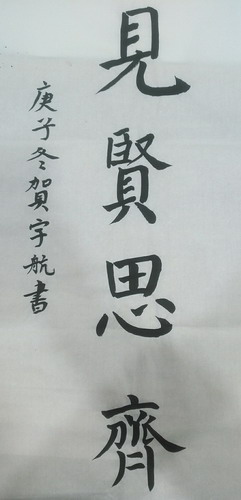 見賢思齊
庚子冬賀宇航書